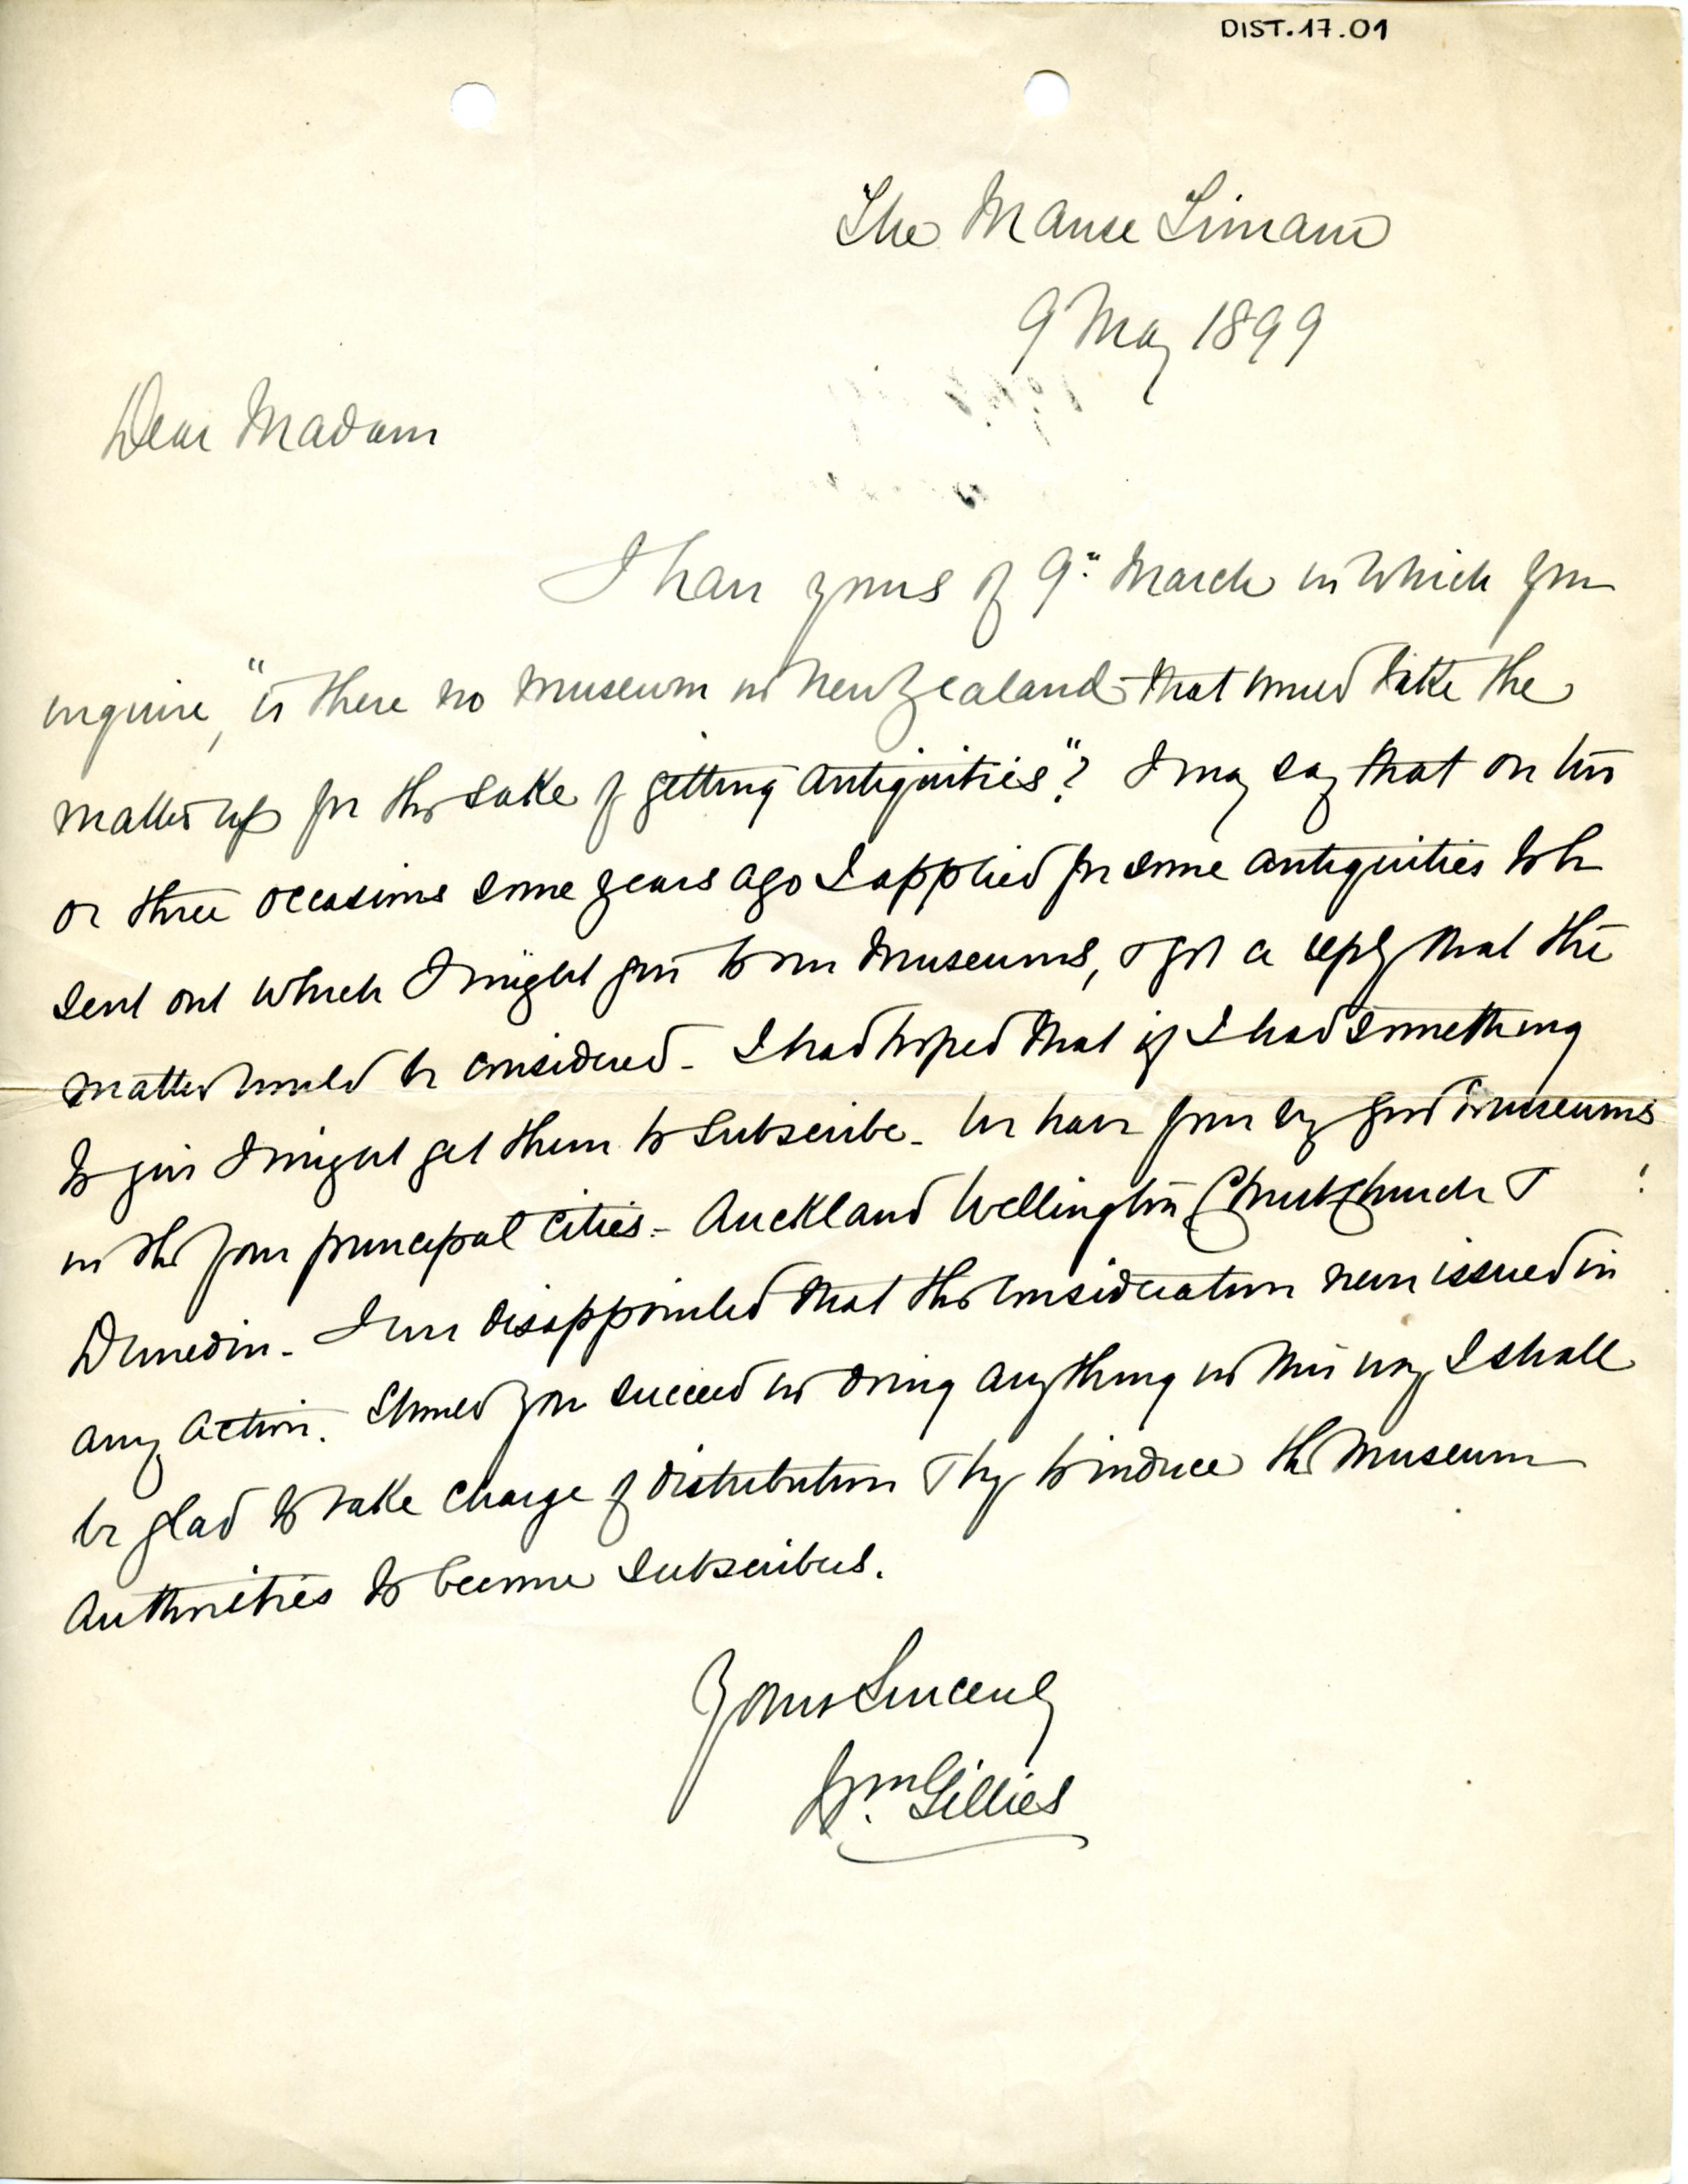 DIST.17.01
The Manse Timaru
9 May 1899
Dear Madam
I have yours of 9th March in which you
inquire, "is there no museum in New Zealand that would take the
matter up for the sake of getting antiquities"? I may say that on two
or three occasions some years ago I applied for some antiquities to be
sent out which I might give to our Museums, & got a reply that the
matter would be considered - I had hoped that if I had something
to give I might get them to subscribe - We have four very good museums
in the four principal cities - Auckland Wellington Christchurch &
Dunedin - I was disappointed that the consideration never issued in
any action. Should you succeed in doing anything in this way I shall
be glad to take charge of distribution & try to induce the Museum
Authorities to become subscribers.
Yours Sincerely
Wm. Gillies